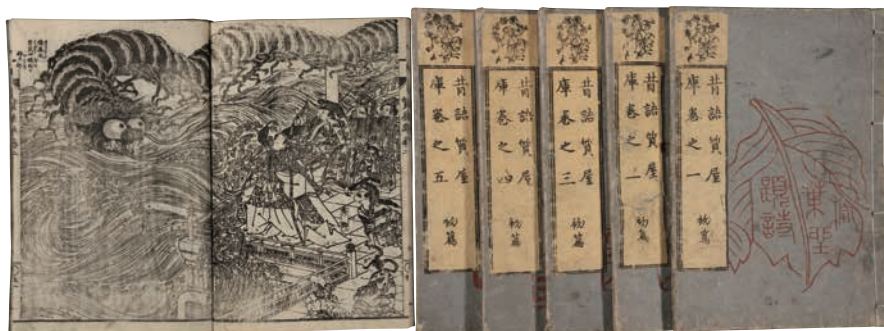 昔語質屋
庫巻之一
初篇
昔語質屋
庫巻之二
初篇
昔語質屋
庫巻之三
初篇
昔語質屋
庫巻之四
初篇
昔語質屋
庫巻之五
初篇
題詩